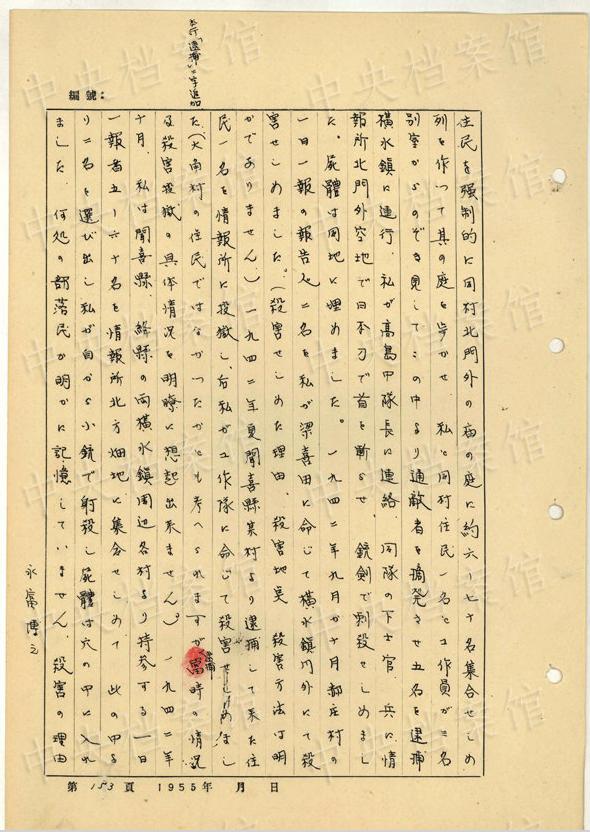 六行「逮捕」二字追加
編號:
住民を强制的に同村北門外の庙の庭に約六〜七十名集合せしめ
列を作つて其の庭を歩かせ 私と同村住民一名と工作員が二名
別室からのぞき見してこの中より通敵者を摘発させ五名を逮捕
橫水鎮に連行、私が高島中隊長に連絡 同隊の下士官、兵に情
報所北門外空地で日本刀で首を斬らせ、銃劍で刺殺せしめまし
た。屍體は同地に埋めました。一九四二年九月か十月郝庄村の
一日一報の報告人二名を私が梁喜田に命じて橫水鎮門外にて殺
害せしめました。(殺害せしめた理由、殺害地点 殺害方法は明
かでありません)一九四二年夏聞喜縣某村より逮捕して来た住
民一名を情報所に投獄し、后私が工作隊に命じて殺害せしめまし
た(大南村の住民ではなかつたかとも考へられますが當時の情況
逮捕
及殺害投獄の具体情況を明瞭に想起出来ません)一九四二年
十月、私は聞喜縣、絳縣の両橫水鎮周辺各村より持参する一日
一報者五〜六十名を情報所北方畑地に集合せしめて 此の中よ
り二名を選び出し私が自から小銃で射殺し屍體は穴の中に入れ
ました。何処の部落民か明かに記憶していません、殺害の理由
永富博之
第 153 頁 1955年 月 日
中央档案馆